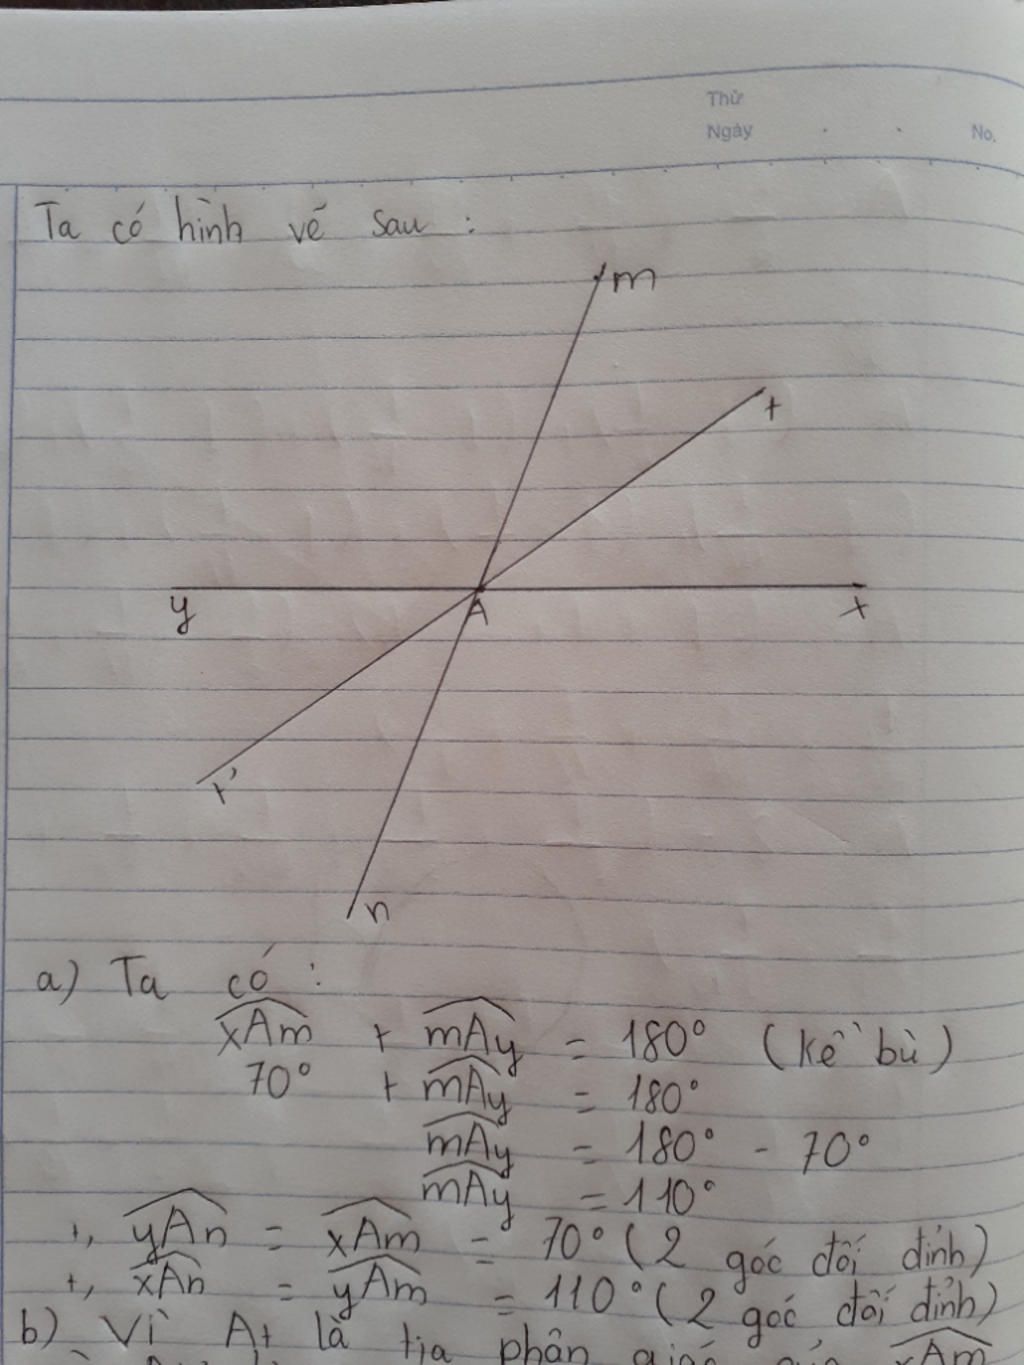 Thứ
Ngày . . No.
Ta có hình vẽ sau :
m
t
y A x
t'
n
a) Ta có :
xAm + mAy = 180° (kề bù)
70° + mAy = 180°
mAy = 180° - 70°
mAy = 110°
+, yAn = xAm = 70° (2 góc đối đỉnh)
+, xAn = yAm = 110° (2 góc đối đỉnh)
b) Vì At là tia phân giác của xAm